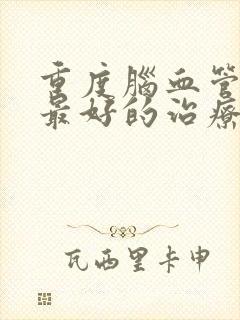 重度腦血管
最好的治療
瓦西里卡申